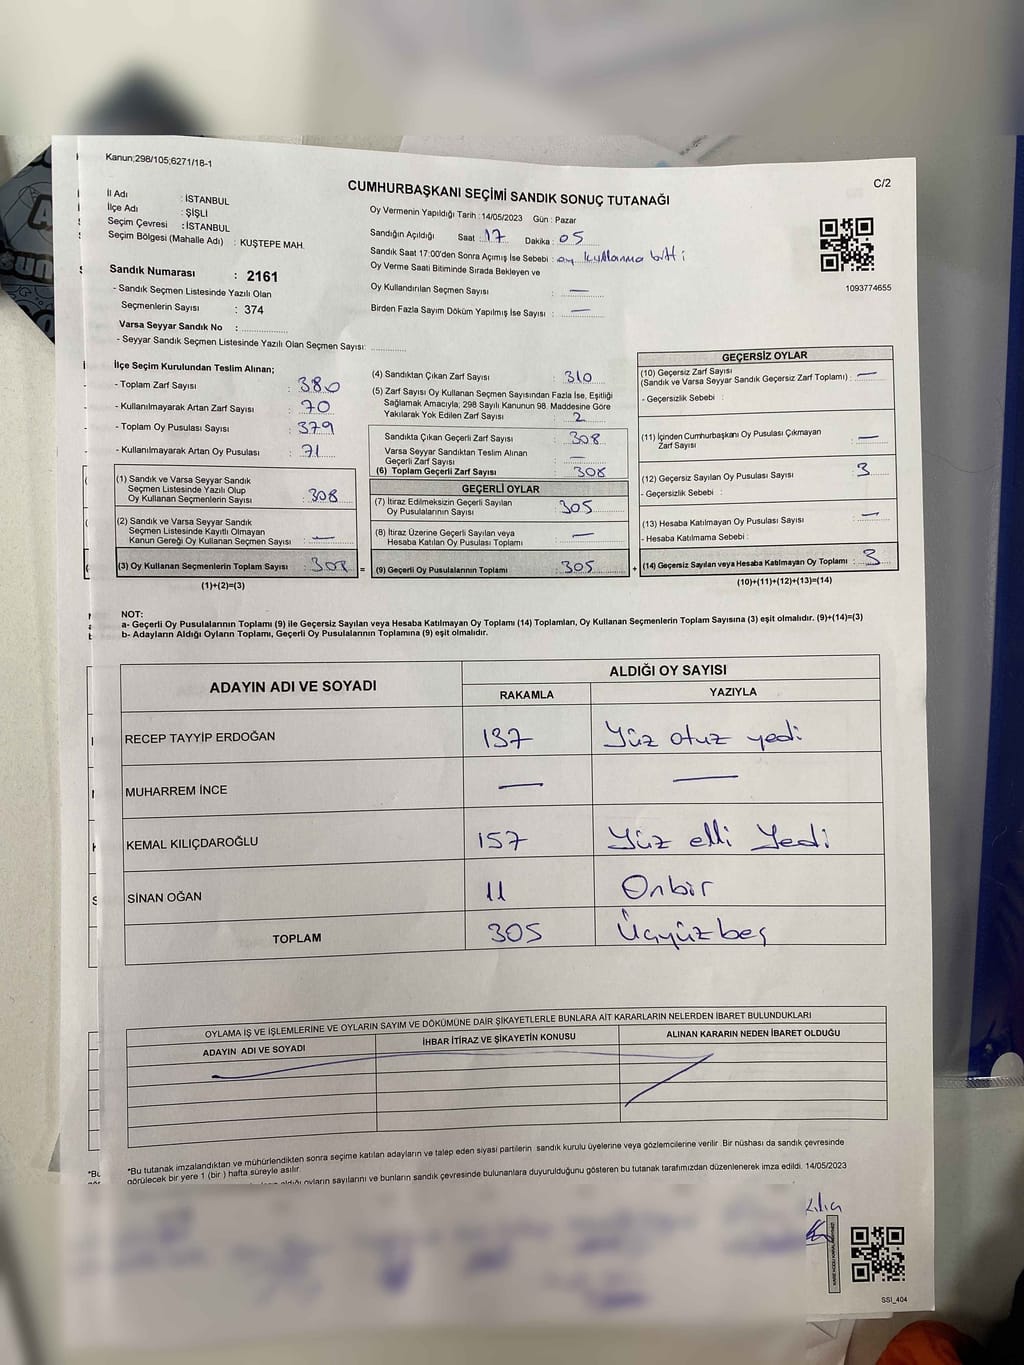 Kanun;298/105;6271/18-1
C/2
CUMHURBAŞKANI SEÇİMİ SANDIK SONUÇ TUTANAĞI
İl Adı : İSTANBUL
İlçe Adı : ŞİŞLİ
Seçim Çevresi : İSTANBUL
Seçim Bölgesi (Mahalle Adı) : KUŞTEPE MAH.
Sandık Numarası : 2161
- Sandık Seçmen Listesinde Yazılı Olan
Seçmenlerin Sayısı : 374
Varsa Seyyar Sandık No :
- Seyyar Sandık Seçmen Listesinde Yazılı Olan Seçmen Sayısı:
Oy Vermenin Yapıldığı Tarih : 14/05/2023 Gün : Pazar
Sandığın Açıldığı Saat : 17 Dakika : 05
Sandık Saat 17:00'den Sonra Açımış İse Sebebi : oy kullanma bitti
Oy Verme Saati Bitiminde Sırada Bekleyen ve
Oy Kullandırılan Seçmen Sayısı : —
Birden Fazla Sayım Döküm Yapılmış İse Sayısı : —
1093774655
İlçe Seçim Kurulundan Teslim Alınan;
- Toplam Zarf Sayısı : 380
- Kullanılmayarak Artan Zarf Sayısı : 70
- Toplam Oy Pusulası Sayısı : 379
- Kullanılmayarak Artan Oy Pusulası : 71
(1) Sandık ve Varsa Seyyar Sandık
Seçmen Listesinde Yazılı Olup
Oy Kullanan Seçmenlerin Sayısı : 308
(2) Sandık ve Varsa Seyyar Sandık
Seçmen Listesinde Kayıtlı Olmayan
Kanun Gereği Oy Kullanan Seçmen Sayısı : —
(3) Oy Kullanan Seçmenlerin Toplam Sayısı : 308
(1)+(2)=(3)
(4) Sandıktan Çıkan Zarf Sayısı : 310
(5) Zarf Sayısı Oy Kullanan Seçmen Sayısından Fazla İse, Eşitliği
Sağlamak Amacıyla; 298 Sayılı Kanunun 98. Maddesine Göre
Yakılarak Yok Edilen Zarf Sayısı : 2
Sandıkta Çıkan Geçerli Zarf Sayısı : 308
Varsa Seyyar Sandıktan Teslim Alınan
Geçerli Zarf Sayısı : —
(6) Toplam Geçerli Zarf Sayısı : 308
GEÇERLİ OYLAR
(7) İtiraz Edilmeksizin Geçerli Sayılan
Oy Pusulalarının Sayısı : 305
(8) İtiraz Üzerine Geçerli Sayılan veya
Hesaba Katılan Oy Pusulası Toplamı : —
= (9) Geçerli Oy Pusulalarının Toplamı : 305 +
GEÇERSİZ OYLAR
(10) Geçersiz Zarf Sayısı
(Sandık ve Varsa Seyyar Sandık Geçersiz Zarf Toplamı) : —
- Geçersizlik Sebebi :
(11) İçinden Cumhurbaşkanı Oy Pusulası Çıkmayan
Zarf Sayısı : —
(12) Geçersiz Sayılan Oy Pusulası Sayısı : 3
- Geçersizlik Sebebi :
(13) Hesaba Katılmayan Oy Pusulası Sayısı : —
- Hesaba Katılmama Sebebi :
(14) Geçersiz Sayılan veya Hesaba Katılmayan Oy Toplamı : 3
(10)+(11)+(12)+(13)=(14)
NOT:
a- Geçerli Oy Pusulalarının Toplamı (9) ile Geçersiz Sayılan veya Hesaba Katılmayan Oy Toplamı (14) Toplamları, Oy Kullanan Seçmenlerin Toplam Sayısına (3) eşit olmalıdır. (9)+(14)=(3)
b- Adayların Aldığı Oyların Toplamı, Geçerli Oy Pusulalarının Toplamına (9) eşit olmalıdır.
ADAYIN ADI VE SOYADI
ALDIĞI OY SAYISI
RAKAMLA YAZIYLA
RECEP TAYYİP ERDOĞAN 137 Yüz otuz yedi
MUHARREM İNCE — —
KEMAL KILIÇDAROĞLU 157 Yüz elli Yedi
SİNAN OĞAN 11 Onbir
TOPLAM 305 Üçyüzbeş
OYLAMA İŞ VE İŞLEMLERİNE VE OYLARIN SAYIM VE DÖKÜMÜNE DAİR ŞİKAYETLERLE BUNLARA AİT KARARLARIN NELERDEN İBARET BULUNDUKLARI
ADAYIN ADI VE SOYADI İHBAR İTİRAZ VE ŞİKAYETİN KONUSU ALINAN KARARIN NEDEN İBARET OLDUĞU
*Bu tutanak imzalandıktan ve mühürlendikten sonra seçime katılan adayların ve talep eden siyasi partilerin sandık kurulu üyelerine veya gözlemcilerine verilir. Bir nüshası da sandık çevresinde
görülecek bir yere 1 (bir) hafta süreyle asılır.
aldığı oyların sayılarını ve bunların sandık çevresinde bulunanlara duyurulduğunu gösteren bu tutanak tarafımızdan düzenlenerek imza edildi. 14/05/2023
SSI_404